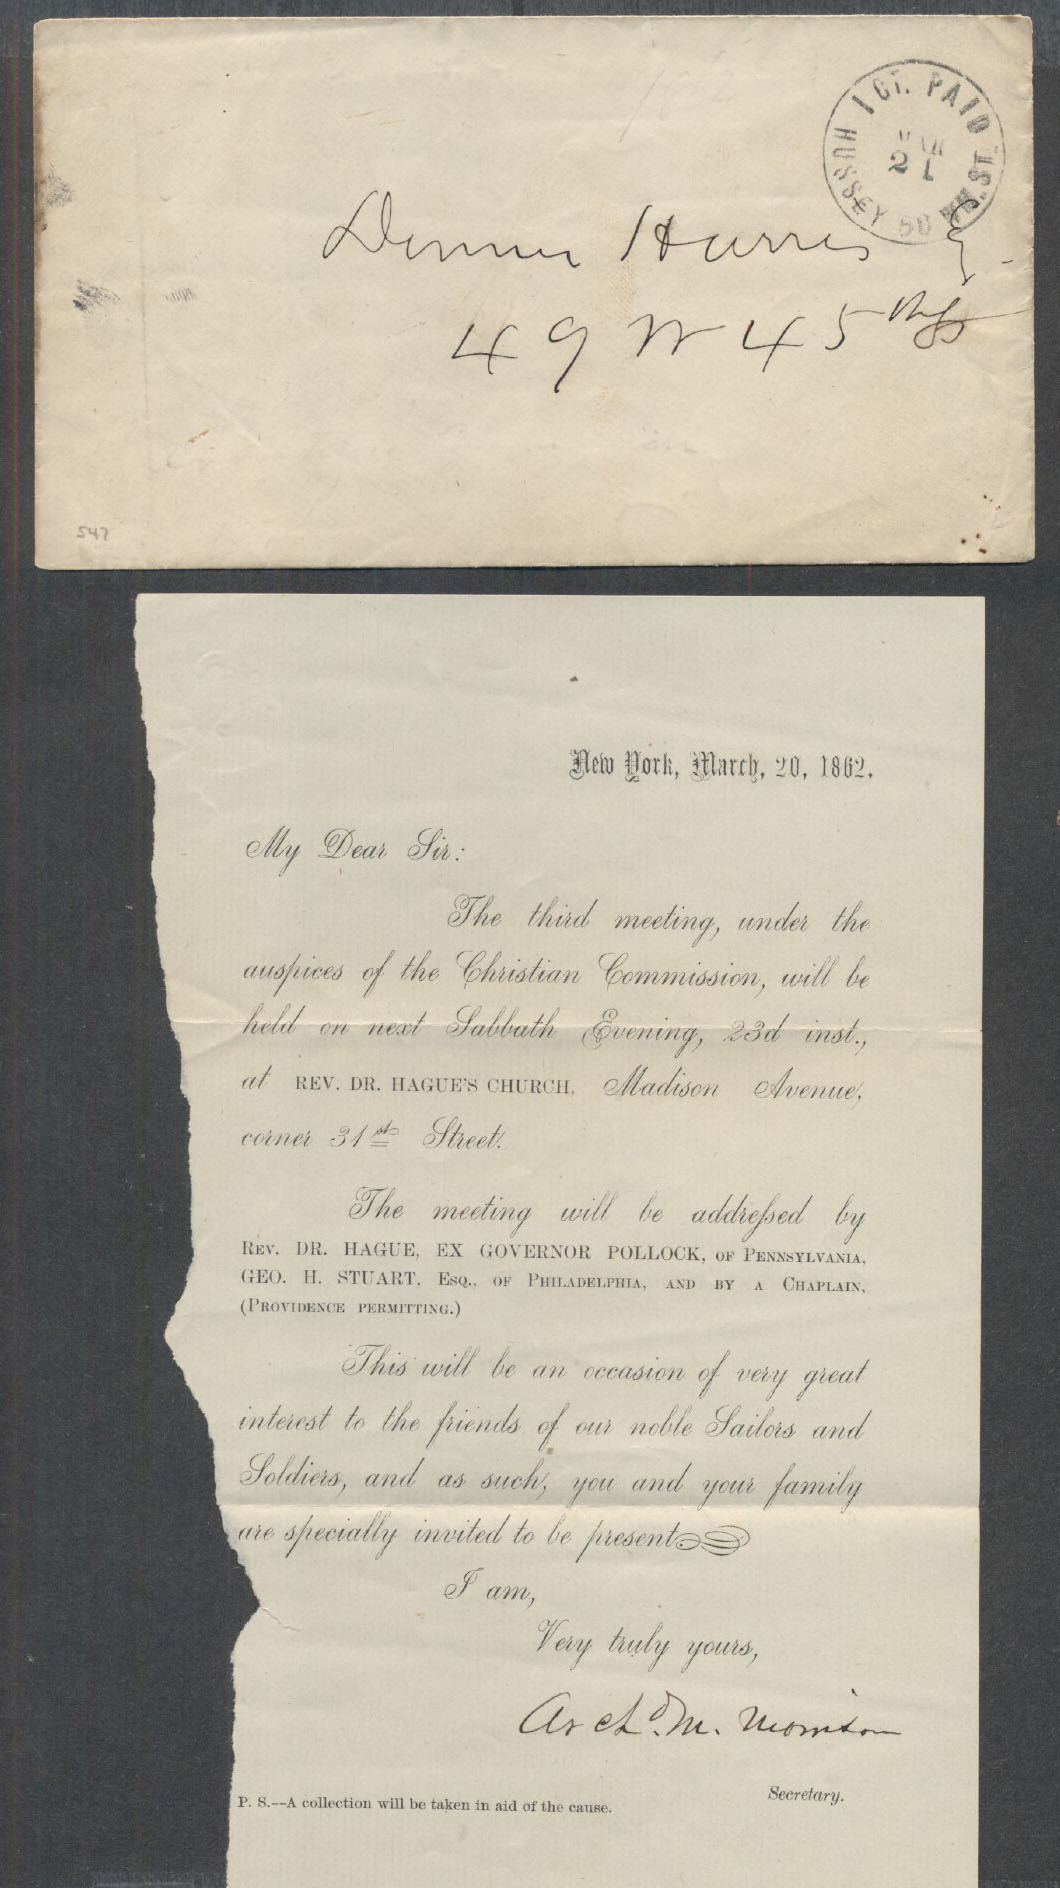 1 CT. PAID
HUSSEY 50 WM. ST.
MAR
21
Dennis Harris Esq
49 W 45th St
547
New York, March, 20, 1862.
My Dear Sir:
The third meeting, under the
auspices of the Christian Commission, will be
held on next Sabbath Evening, 23d inst.,
at REV. DR. HAGUE'S CHURCH, Madison Avenue,
corner 31st Street.
The meeting will be addreſsed by
REV. DR. HAGUE, EX GOVERNOR POLLOCK, OF PENNSYLVANIA,
GEO. H. STUART, ESQ., OF PHILADELPHIA, AND BY A CHAPLAIN,
(PROVIDENCE PERMITTING.)
This will be an occasion of very great
interest to the friends of our noble Sailors and
Soldiers, and as such, you and your family
are specially invited to be present
I am,
Very truly yours,
Archd. M. Morrison
Secretary.
P. S.--A collection will be taken in aid of the cause.